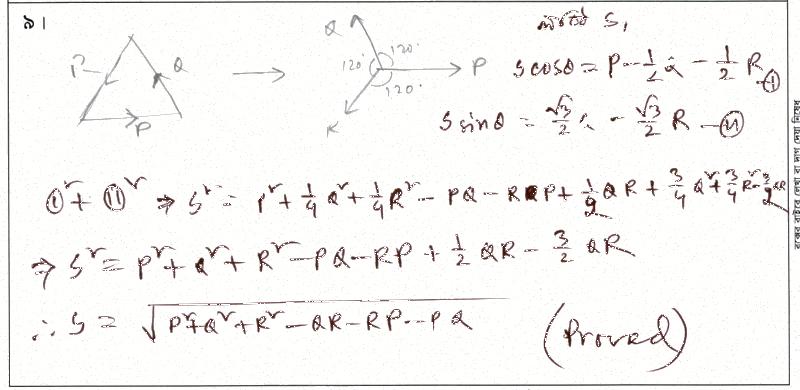 ৯।
P Q R
Q 120° 120° 120° P R
S cosθ = P - 1/2 Q - 1/2 R - (i)
S sinθ = √3/2 Q - √3/2 R - (ii)
(i)² + (ii)² ⇒ S² = P² + 1/4 Q² + 1/4 R² - PQ - RP + 1/2 QR + 3/4 Q² + 3/4 R² - 3/2 QR
⇒ S² = P² + Q² + R² - PQ - RP + 1/2 QR - 3/2 QR
∴ S = √(P² + Q² + R² - QR - RP - PQ) (Proved)